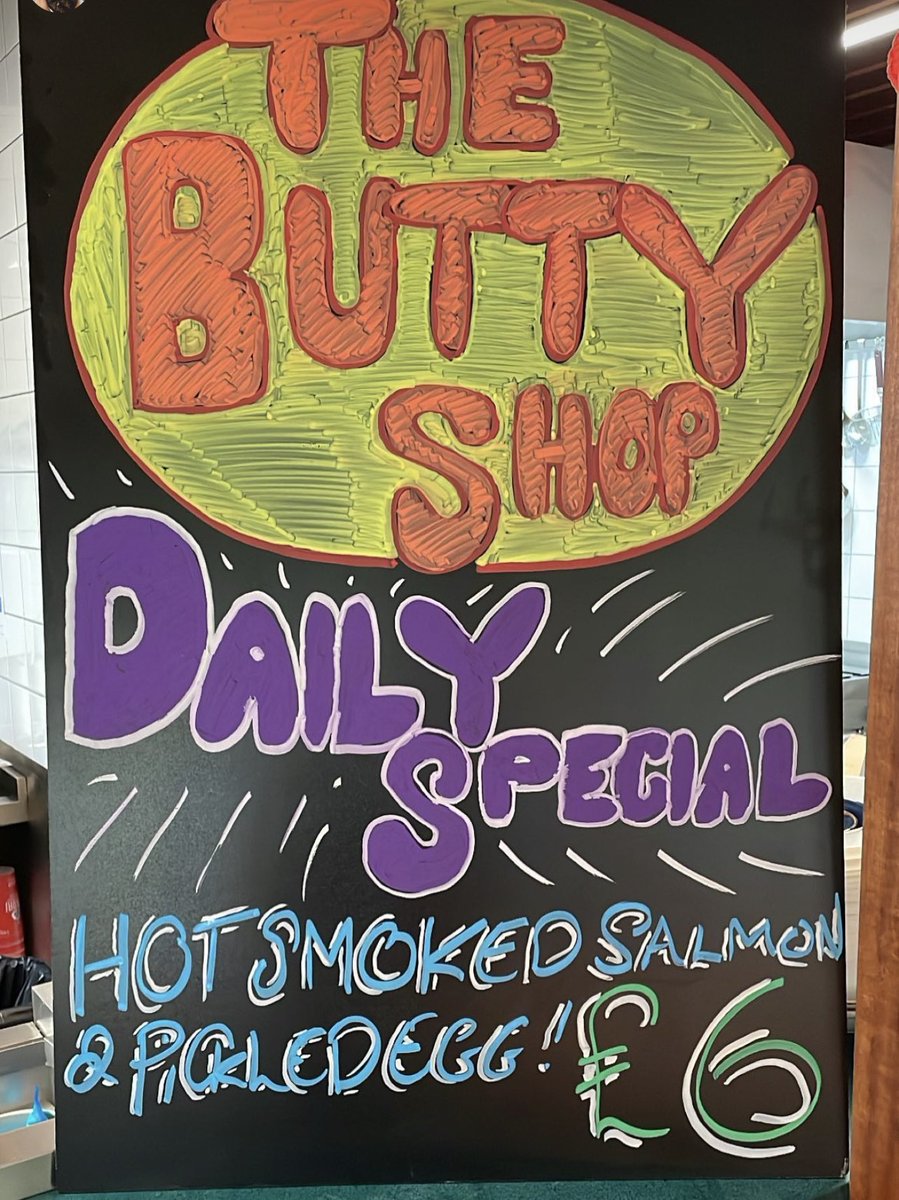 THE
BUTTY
SHOP
DAILY
SPECIAL
HOT SMOKED SALMON
& PICKLED EGG!! £6